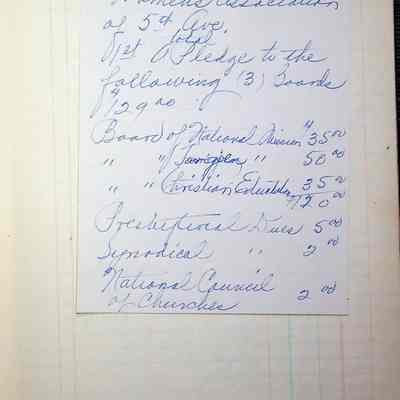 Women's Association
of 5th Ave.
total
1st Pledge to the
following (3) Boards
$129.00
Board of National Missions $35.00
" " Foreign " 50.00
" " Christian Education 35.00
$120.00
Presbyterial Dues 5.00
Synodical " 2.00
National Council
of Churches 2.00